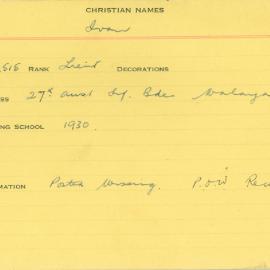 CHRISTIAN NAMES
Ivan
515 RANK Lieut DECORATIONS
SS 27th Aust Inf. Bde Malaya
NG SCHOOL 1930.
MATION Posted Missing. P.O.W Rec